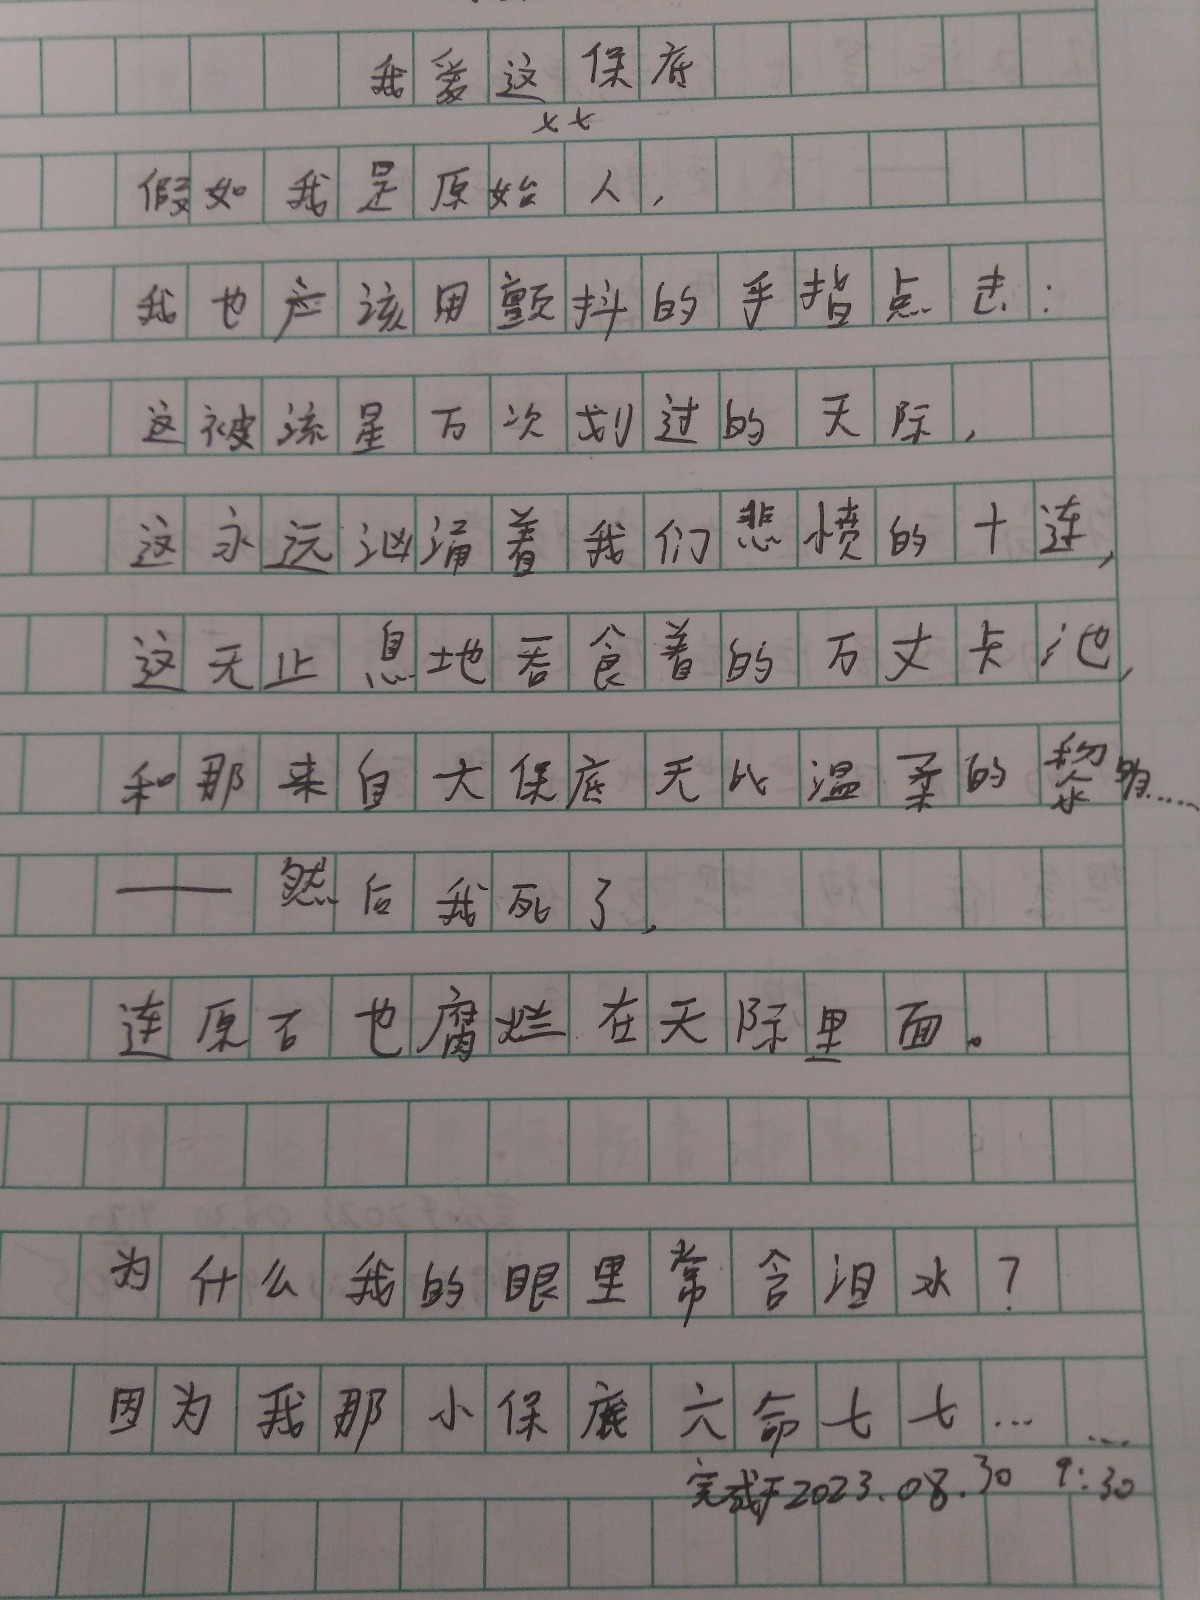 我爱这保底
××
假如我是原始人，
我也应该用颤抖的手指点击：
这被流星万次划过的天际，
这永远汹涌着我们悲愤的十连，
这无止息地吞食着的万丈卡池，
和那来自大保底无比温柔的黎明……
——然后我死了，
连原石也腐烂在天际里面。
为什么我的眼里常含泪水？
因为我那小保底六命七七……
完成于2023.08.30 9:30